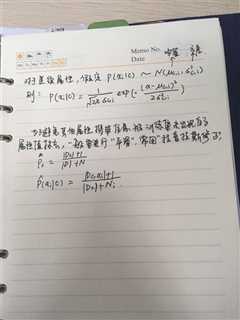 Memo No.
Date
对连续属性,假定 P(xi|c) ~ N(μc,i, σ²c,i)
则: P(xi|c) = 1/(√2π σc,i) exp(-(xi-μc,i)²/2σ²c,i)
为避免其他属性携带信息,被训练集未出现的
属性值抹去,一般要进行“平滑”,常用“拉普拉斯修正”
P̂c = |Dc|+1 / |D|+N
P̂(xi|c) = |Dc,xi|+1 / |Dc|+Ni